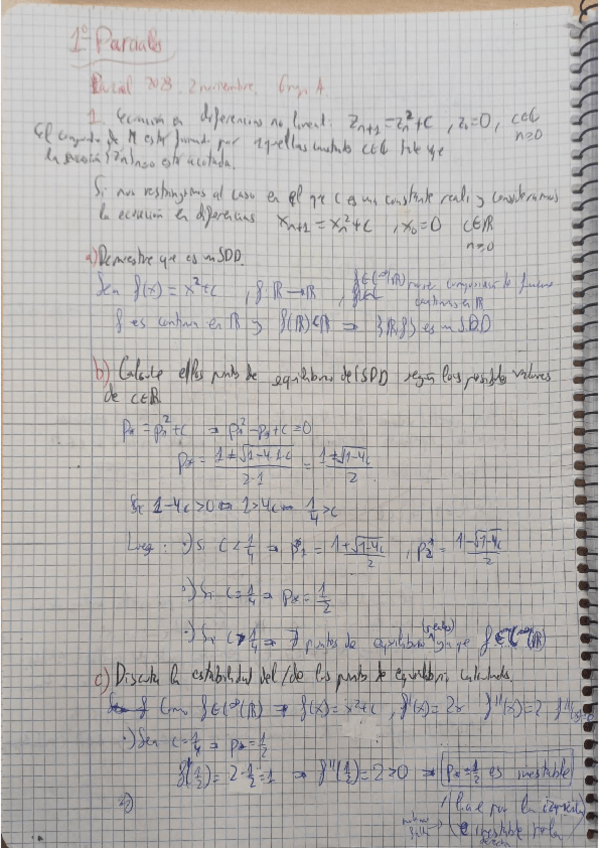 1º Parciales
Parcial 2023 2 noviembre. Grupo A
1. Ecuación en diferencias no lineal: z_{n+1} = z_n² + c , z_0 = 0, c∈ℂ
n≥0
El conjunto de M está formado por aquellas c∈ℂ tale que
la sucesión {z_n}_{n≥0} está acotada.
Si nos restringimos al caso en el que c es una constante real y consideramos
la ecuación en diferencias x_{n+1} = x_n² + c , x_0 = 0 c∈ℝ
n≥0
a) Demuestre que es un SDD.
Sea f(x) = x² + c , f: ℝ → ℝ , f∈C^∞(ℝ) por ser composición de funciones
continuas en ℝ
f es continua en ℝ y f(ℝ)⊂ℝ ⇒ {ℝ, f} es un SDD
b) Calcule el/los punto de equilibrio del SDD según los posibles valores
de c∈ℝ
p_* = p_*² + c ⇒ p_*² - p_* + c = 0
p_* = (1±√(1-4·1·c))/(2·1) = (1±√(1-4c))/2
Si 1-4c>0 ⇔ 1>4c ⇔ 1/4 > c
Luego: ·) Si c<1/4 ⇒ p_1^* = (1+√(1-4c))/2 , p_2^* = (1-√(1-4c))/2
·) Si c=1/4 ⇒ p_* = 1/2
·) Si c>1/4 ⇒ ∄ puntos de equilibrio (reales) ya que f∈C^∞(ℝ)
c) Discuta la estabilidad del/de los punto de equilibrio calculados.
Como f∈C^∞(ℝ) ⇒ f(x) = x²+c , f'(x) = 2x f''(x) = 2 f'''(x)=0
·) Sea c=1/4 ⇒ p_* = 1/2
f'(1/2) = 2·1/2 = 1 ⇒ f''(1/2) = 2>0 ⇒ p_* = 1/2 es inestable
por la izquierda
inestable por la
derecha